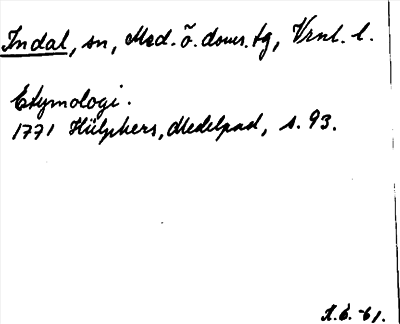 Indal, sn, Med. ö. doms. tg, Vrnl. l.
Etymologi.
1771 Hülphers, Medelpad, s. 93.
K. E. -61.